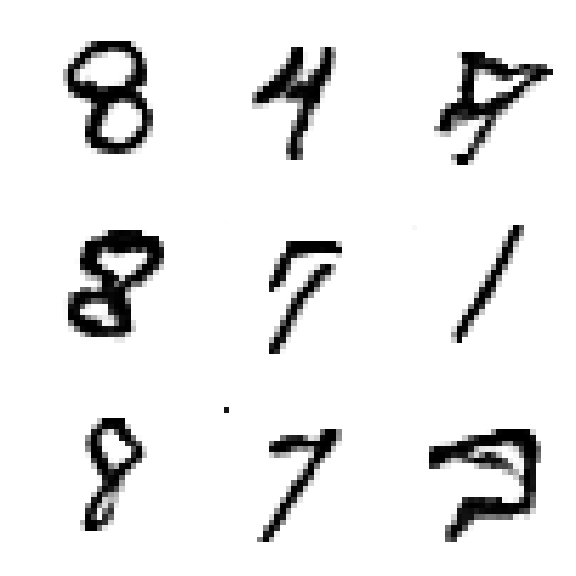 8 4
8 7 1
8 7